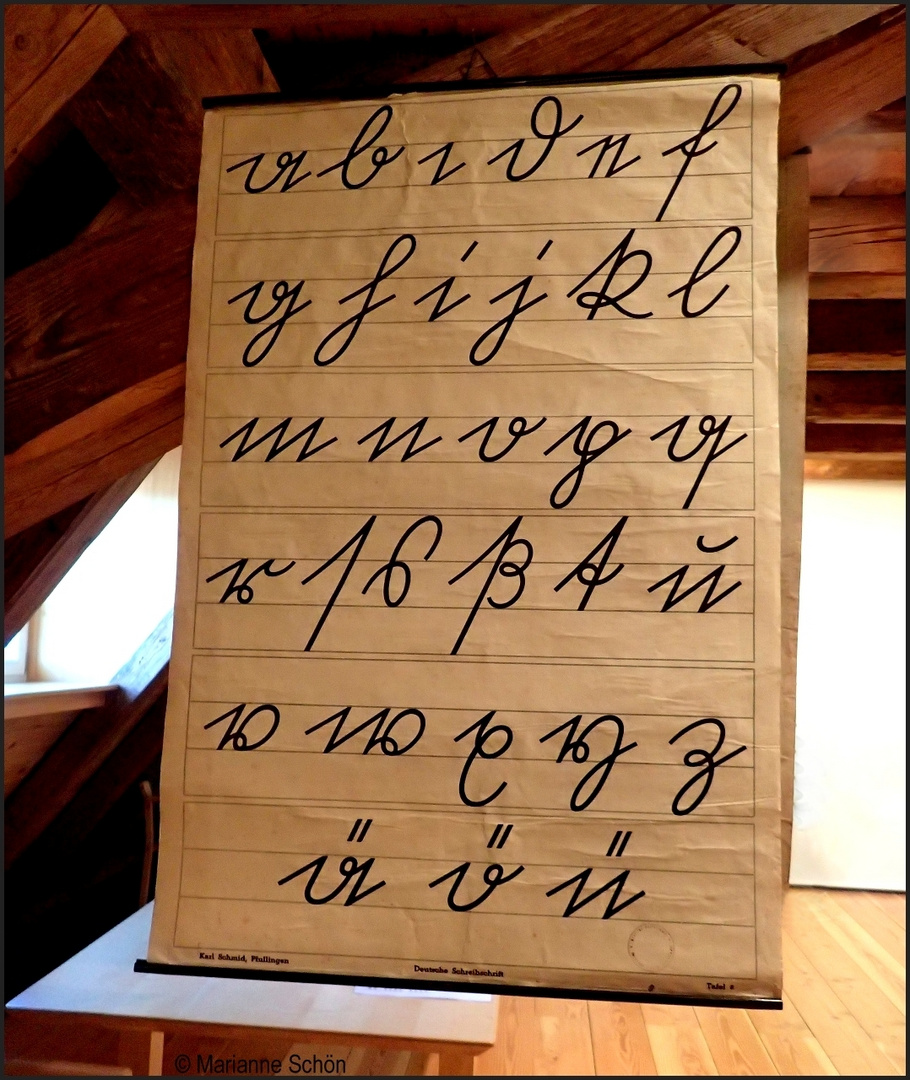 a b c d e f
g h i j k l
m n o p q
r ſ s ß t u
v w x y z
ä ö ü
Karl Schmid, Pfullingen Deutsche Schreibschrift
© Marianne Schön